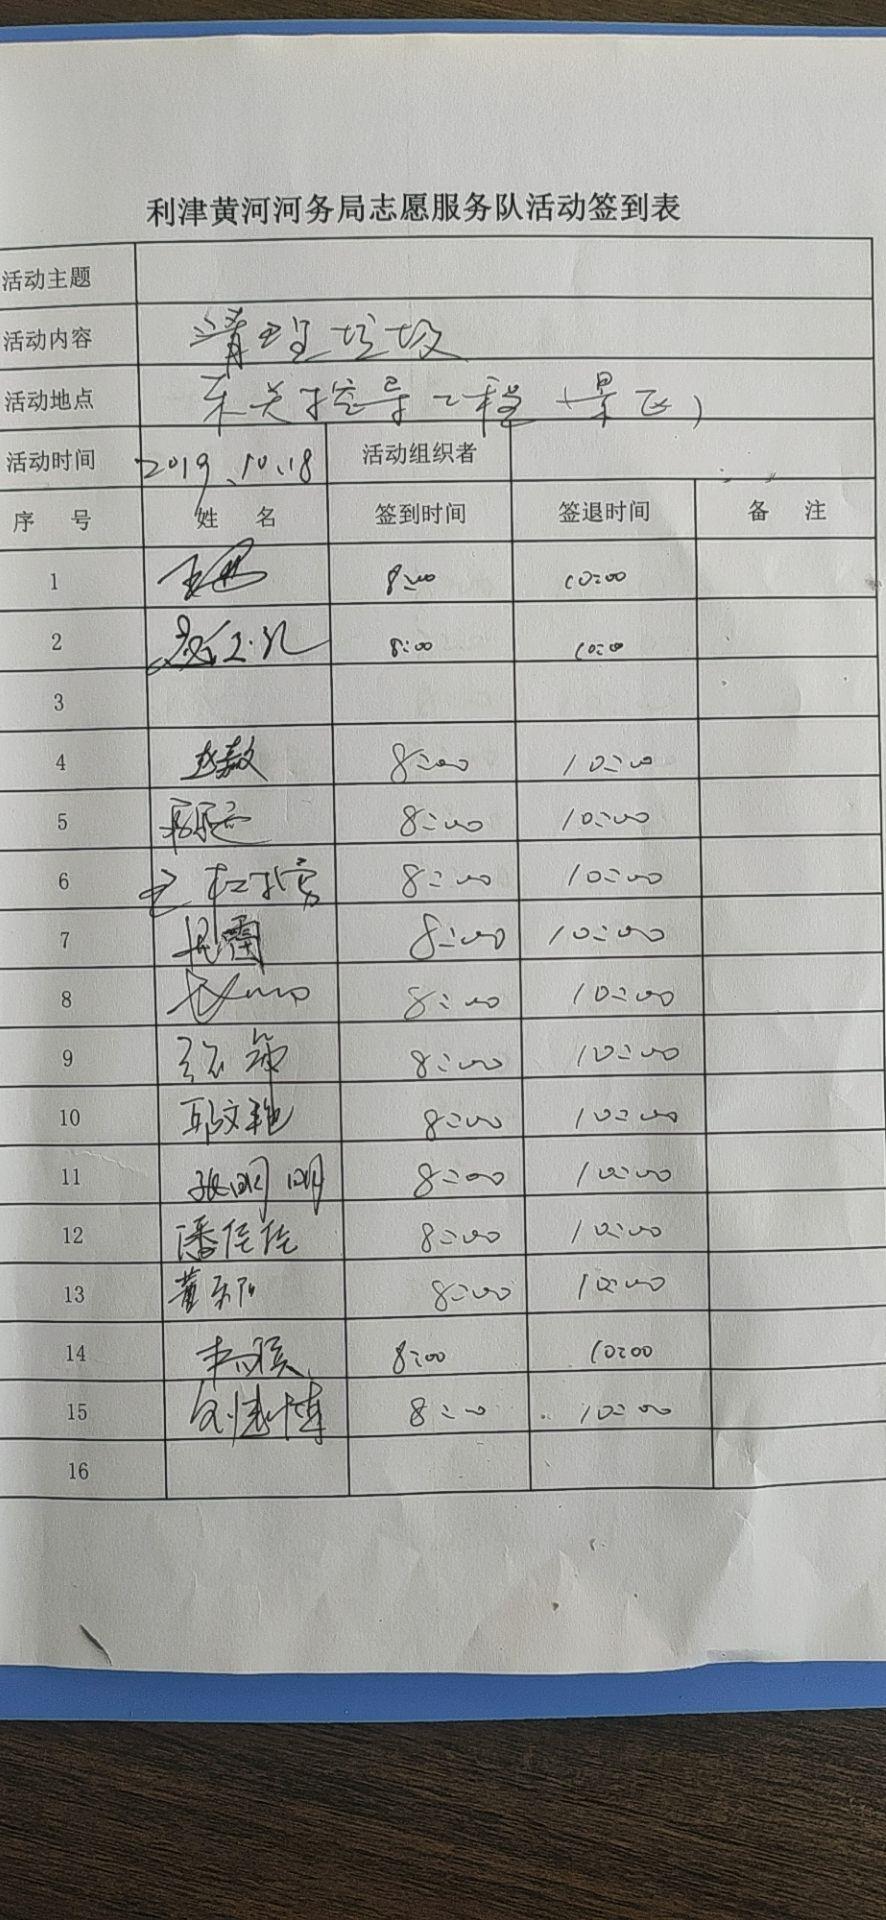 利津黄河河务局志愿服务队活动签到表
活动主题
活动内容 清理垃圾
活动地点 东关控导工程(景区)
活动时间 2019.10.18 活动组织者
序 号 姓 名 签到时间 签退时间 备 注
1 8:00 10:00
2 8:00 10:00
3
4 8:00 10:00
5 8:00 10:00
6 8:00 10:00
7 8:00 10:00
8 8:00 10:00
9 8:00 10:00
10 8:00 10:00
11 张明明 8:00 10:00
12 潘佳佳 8:00 10:00
13 8:00 10:00
14 8:00 10:00
15 8:00 10:00
16